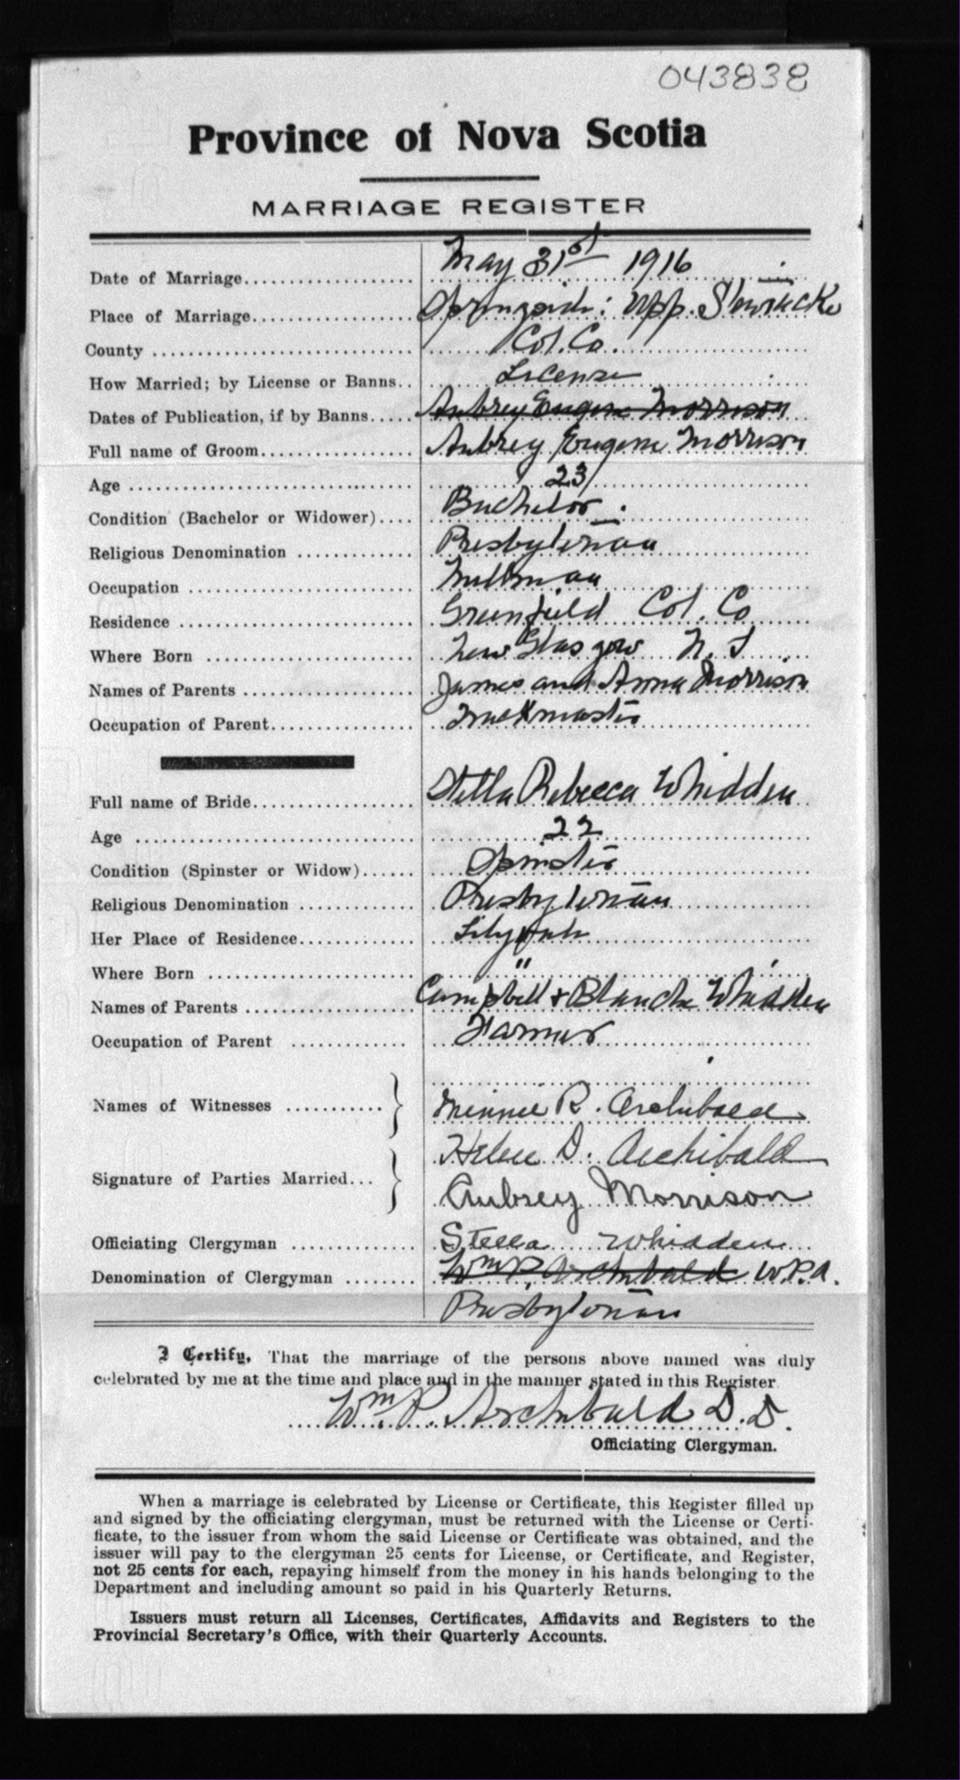 043838
Province of Nova Scotia
MARRIAGE REGISTER
Date of Marriage May 31st 1916
Place of Marriage Springside: Upp. Stewiacke
County Col. Co.
How Married; by License or Banns License
Dates of Publication, if by Banns Aubrey Eugene Morrison
Full name of Groom Aubrey Eugene Morrison
Age 23
Condition (Bachelor or Widower) Bachelor.
Religious Denomination Presbyterian
Occupation Millman
Residence Greenfield Col. Co
Where Born New Glasgow N. S.
Names of Parents James and Anna Morrison
Occupation of Parent Trackmaster
Full name of Bride Stella Rebecca Whidden
Age 22
Condition (Spinster or Widow) Spinster
Religious Denomination Presbyterian
Her Place of Residence
Where Born "
Names of Parents Campbell & Blanche Whidden
Occupation of Parent Farmer
Names of Witnesses Minnie R. Archibald
Helen D. Archibald
Signature of Parties Married Aubrey Morrison
Officiating Clergyman Stella Whidden
Denomination of Clergyman Wm P. Archibald W.P.A.
Presbyterian
I Certify, That the marriage of the persons above named was duly
celebrated by me at the time and place and in the manner stated in this Register
Wm. P. Archibald D.D.
Officiating Clergyman.
When a marriage is celebrated by License or Certificate, this Register filled up
and signed by the officiating clergyman, must be returned with the License or Certi-
ficate, to the issuer from whom the said License or Certificate was obtained, and the
issuer will pay to the clergyman 25 cents for License, or Certificate, and Register,
not 25 cents for each, repaying himself from the money in his hands belonging to the
Department and including amount so paid in his Quarterly Returns.
Issuers must return all Licenses, Certificates, Affidavits and Registers to the
Provincial Secretary's Office, with their Quarterly Accounts.